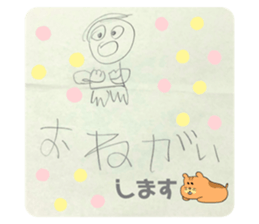 おねがい
します